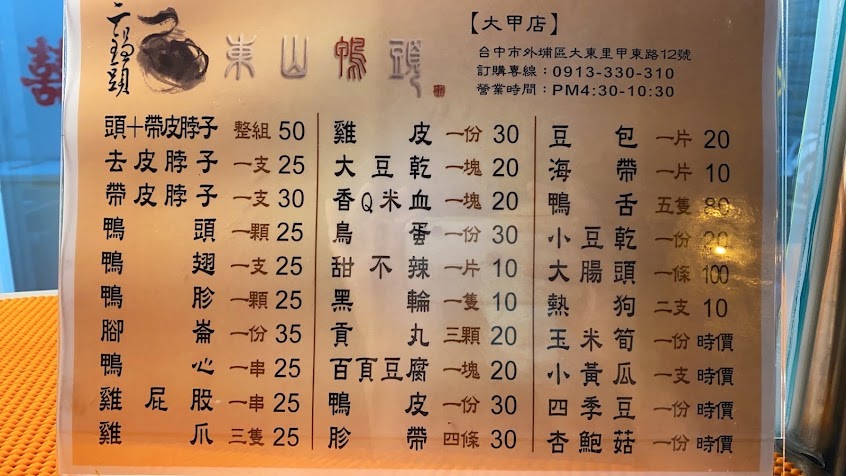 二鍋頭
東山鴨頭
【大甲店】
台中市外埔區大東里甲東路12號
訂購專線：0913-330-310
營業時間：PM4:30-10:30
頭十帶皮脖子 整組 50
去皮脖子 一支 25
帶皮脖子 一支 30
鴨頭 一顆 25
鴨翅 一支 25
鴨胗 一顆 25
腳崙 一份 35
鴨心 一串 25
雞屁股 一串 25
雞爪 三隻 25
雞皮 一份 30
大豆乾 一塊 20
香Q米血 一塊 20
鳥蛋 一份 30
甜不辣 一片 10
黑輪 一隻 10
貢丸 三顆 20
百頁豆腐 一塊 20
鴨皮 一份 30
胗帶 四條 30
豆包 一片 20
海帶 一片 10
鴨舌 五隻 80
小豆乾 一份 20
大腸頭 一條 100
熱狗 二支 10
玉米筍 一份 時價
小黃瓜 一支 時價
四季豆 一份 時價
杏鮑菇 一份 時價
囍